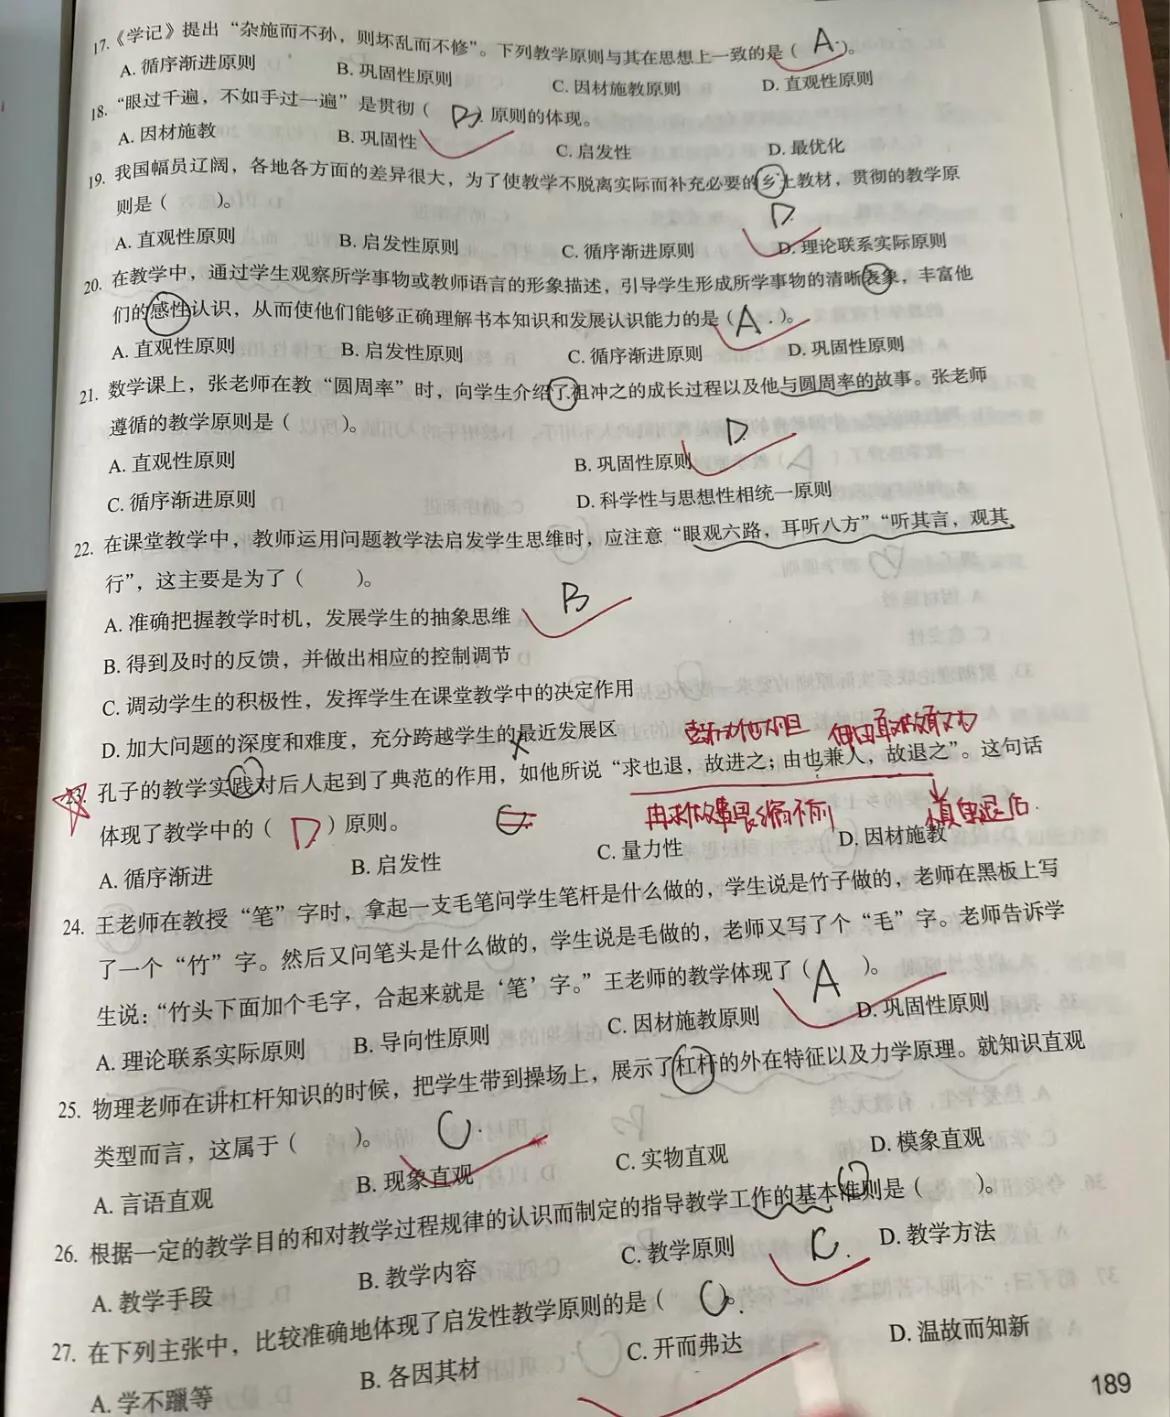 17.《学记》提出“杂施而不孙，则坏乱而不修”。下列教学原则与其在思想上一致的是（ A ）。
A. 循序渐进原则 B. 巩固性原则 C. 因材施教原则 D. 直观性原则
18. “眼过千遍，不如手过一遍”是贯彻（ B ）原则的体现。
A. 因材施教 B. 巩固性 C. 启发性 D. 最优化
19. 我国幅员辽阔，各地各方面的差异很大，为了使教学不脱离实际而补充必要的乡土教材，贯彻的教学原
则是（ ）。
D
A. 直观性原则 B. 启发性原则 C. 循序渐进原则 D. 理论联系实际原则
20. 在教学中，通过学生观察所学事物或教师语言的形象描述，引导学生形成所学事物的清晰表象，丰富他
们的感性认识，从而使他们能够正确理解书本知识和发展认识能力的是（ A ）。
A. 直观性原则 B. 启发性原则 C. 循序渐进原则 D. 巩固性原则
21. 数学课上，张老师在教“圆周率”时，向学生介绍了祖冲之的成长过程以及他与圆周率的故事。张老师
遵循的教学原则是（ ）。
D
A. 直观性原则 B. 巩固性原则
C. 循序渐进原则 D. 科学性与思想性相统一原则
22. 在课堂教学中，教师运用问题教学法启发学生思维时，应注意“眼观六路，耳听八方”“听其言，观其
行”，这主要是为了（ ）。
B
A. 准确把握教学时机，发展学生的抽象思维
B. 得到及时的反馈，并做出相应的控制调节
C. 调动学生的积极性，发挥学生在课堂教学中的决定作用
D. 加大问题的深度和难度，充分跨越学生的最近发展区
23. 孔子的教学实践对后人起到了典范的作用，如他所说“求也退，故进之；由也兼人，故退之”。这句话
体现了教学中的（ D ）原则。
A. 循序渐进 B. 启发性 C. 量力性 D. 因材施教
24. 王老师在教授“笔”字时，拿起一支毛笔问学生笔杆是什么做的，学生说是竹子做的，老师在黑板上写
了一个“竹”字。然后又问笔头是什么做的，学生说是毛做的，老师又写了个“毛”字。老师告诉学
生说：“竹头下面加个毛字，合起来就是‘笔’字。”王老师的教学体现了（ A ）。
A. 理论联系实际原则 B. 导向性原则 C. 因材施教原则 D. 巩固性原则
25. 物理老师在讲杠杆知识的时候，把学生带到操场上，展示了杠杆的外在特征以及力学原理。就知识直观
类型而言，这属于（ ）。 C
A. 言语直观 B. 现象直观 C. 实物直观 D. 模象直观
26. 根据一定的教学目的和对教学过程规律的认识而制定的指导教学工作的基本准则是（ ）。
C
A. 教学手段 B. 教学内容 C. 教学原则 D. 教学方法
27. 在下列主张中，比较准确地体现了启发性教学原则的是（ C ）。
A. 学不躐等 B. 各因其材 C. 开而弗达 D. 温故而知新
189